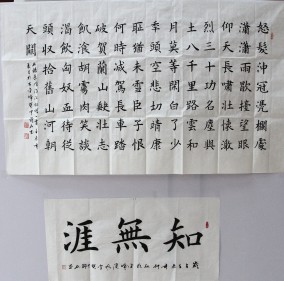 怒髮沖冠憑欄處
瀟瀟雨歇擡望眼
仰天長嘯壯懷激
烈三十功名塵與
土八千里路雲和
月莫等閑白了少
年頭空悲切靖康
恥猶未雪臣子恨
何時滅駕長車踏
破賀蘭山缺壯志
飢湌胡虜肉笑談
渴飲匈奴血待從
頭收拾舊山河朝
天闕
知無涯